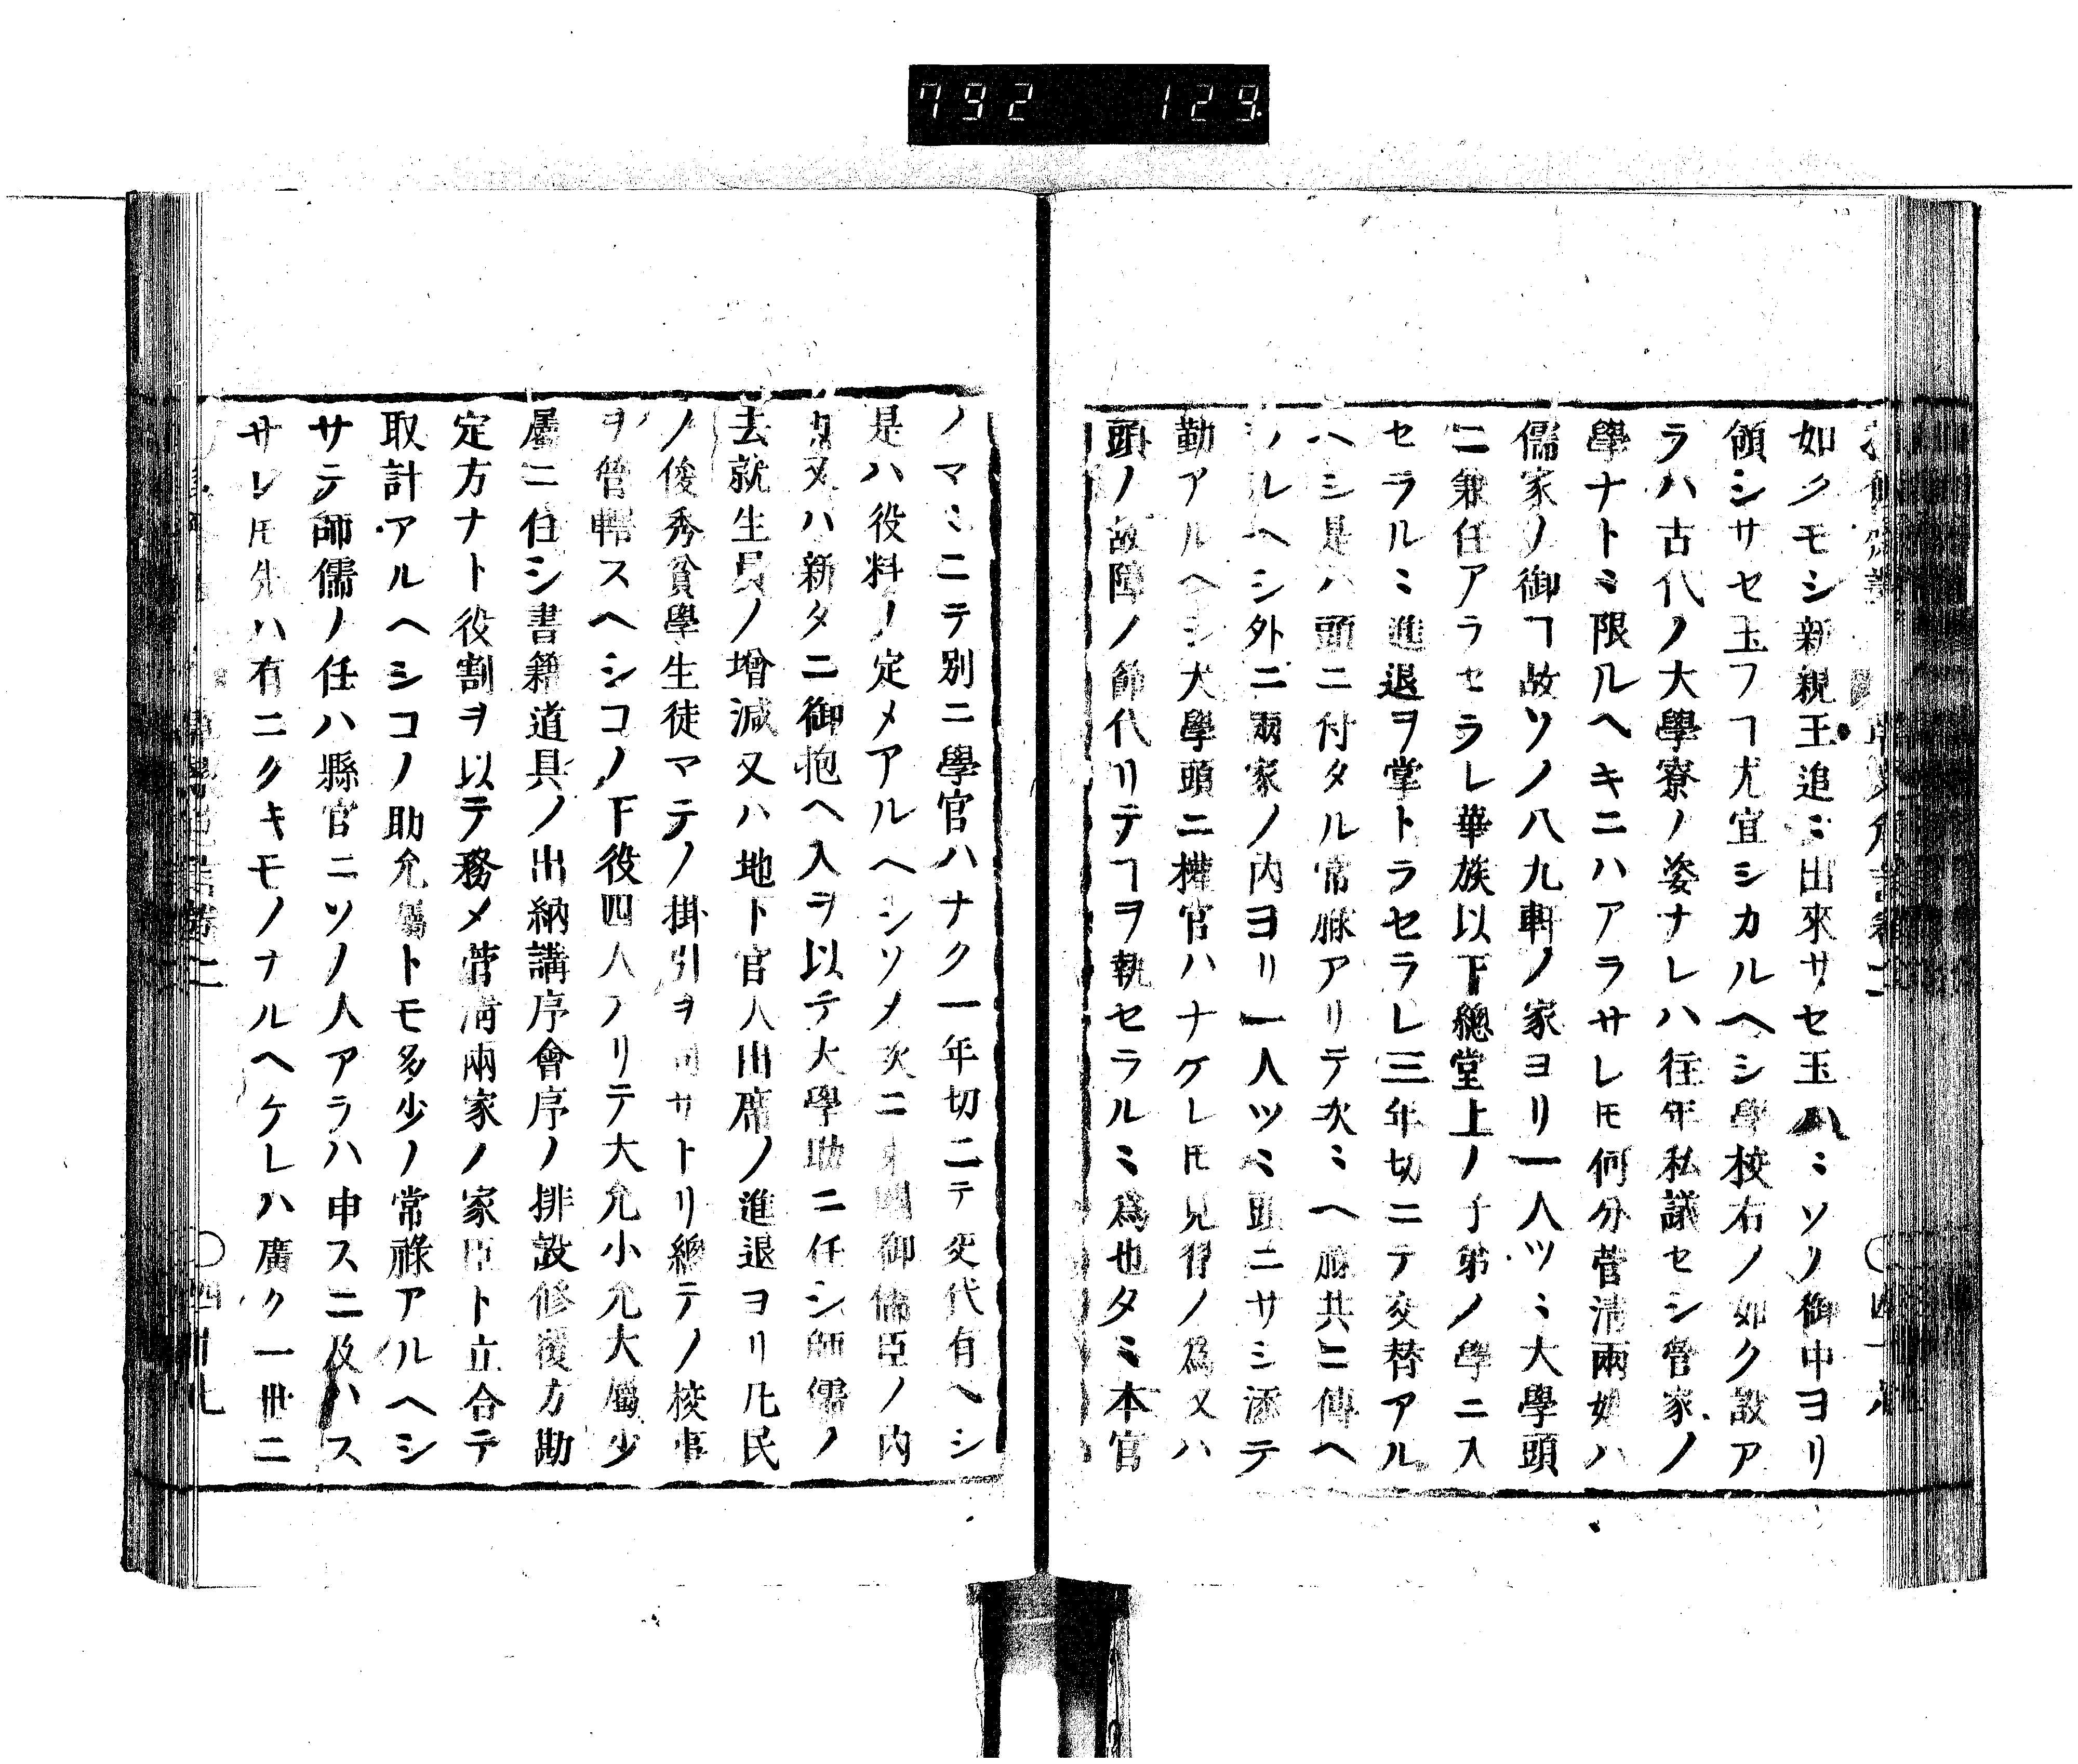 792 129
如クモシ新親王追ミ出來サセ玉ハミソノ御中ヨリ
領シサセ玉フヿ尤宜シカルヘシ學校右ノ如ク設ア
ラハ古代ノ大學寮ノ姿ナレハ往年私議セシ菅家ノ
學ナトミ限ルヘキニハアラサレ𪜈何分菅淸兩如ハ
儒家ノ御ヿ故ソノ八九軒ノ家ヨリ一人ツミ大學頭
ニ兼任アラセラレ華族以下總堂上ノ子弟ノ學ニ入
セラルミ進退ヲ掌トラセラレ三年切ニテ交替アル
ヘシ是ハ頭ニ付タル常祿アリテ次ミヘ廳共ニ傳ヘ
ノレヘシ外ニ兩家ノ内ヨリ一人ツミ頭ニサシ添テ
勤アルヘシ大學頭ニ權官ハナケレ𪜈見習ノ爲又ハ
頭ノ故障ノ節代リテヿヲ執セラルミ爲也タミ本官
ノマミニテ別ニ學官ハナク一年切ニテ交代有ヘシ
是ハ役料ノ定メアルヘシソメ次ニ御儒臣ノ内
又ハ新タニ御抱ヘ入ヲ以テ大學助ニ任シ師儒ノ
去就生員ノ增減又ハ地下官人出席ノ進退ヨリ凡民
ノ俊秀貧學生徒マテノ掛引ヲ司サトリ總テノ校事
ヲ管轄スヘシコノ下役四人アリテ大允小允大屬少
屬ニ任シ書籍道具ノ出納講序會序ノ排設修復方勘
定方ナト役割ヲ以テ務メ菅淸兩家ノ家臣ト立合テ
取計アルヘシコノ助允屬トモ多少ノ常祿アルヘシ
サテ師儒ノ任ハ縣官ニソノ人アラハ申スニ及ハス
サレ𪜈先ハ有ニクキモノナルヘケレハ廣ク一世ニ